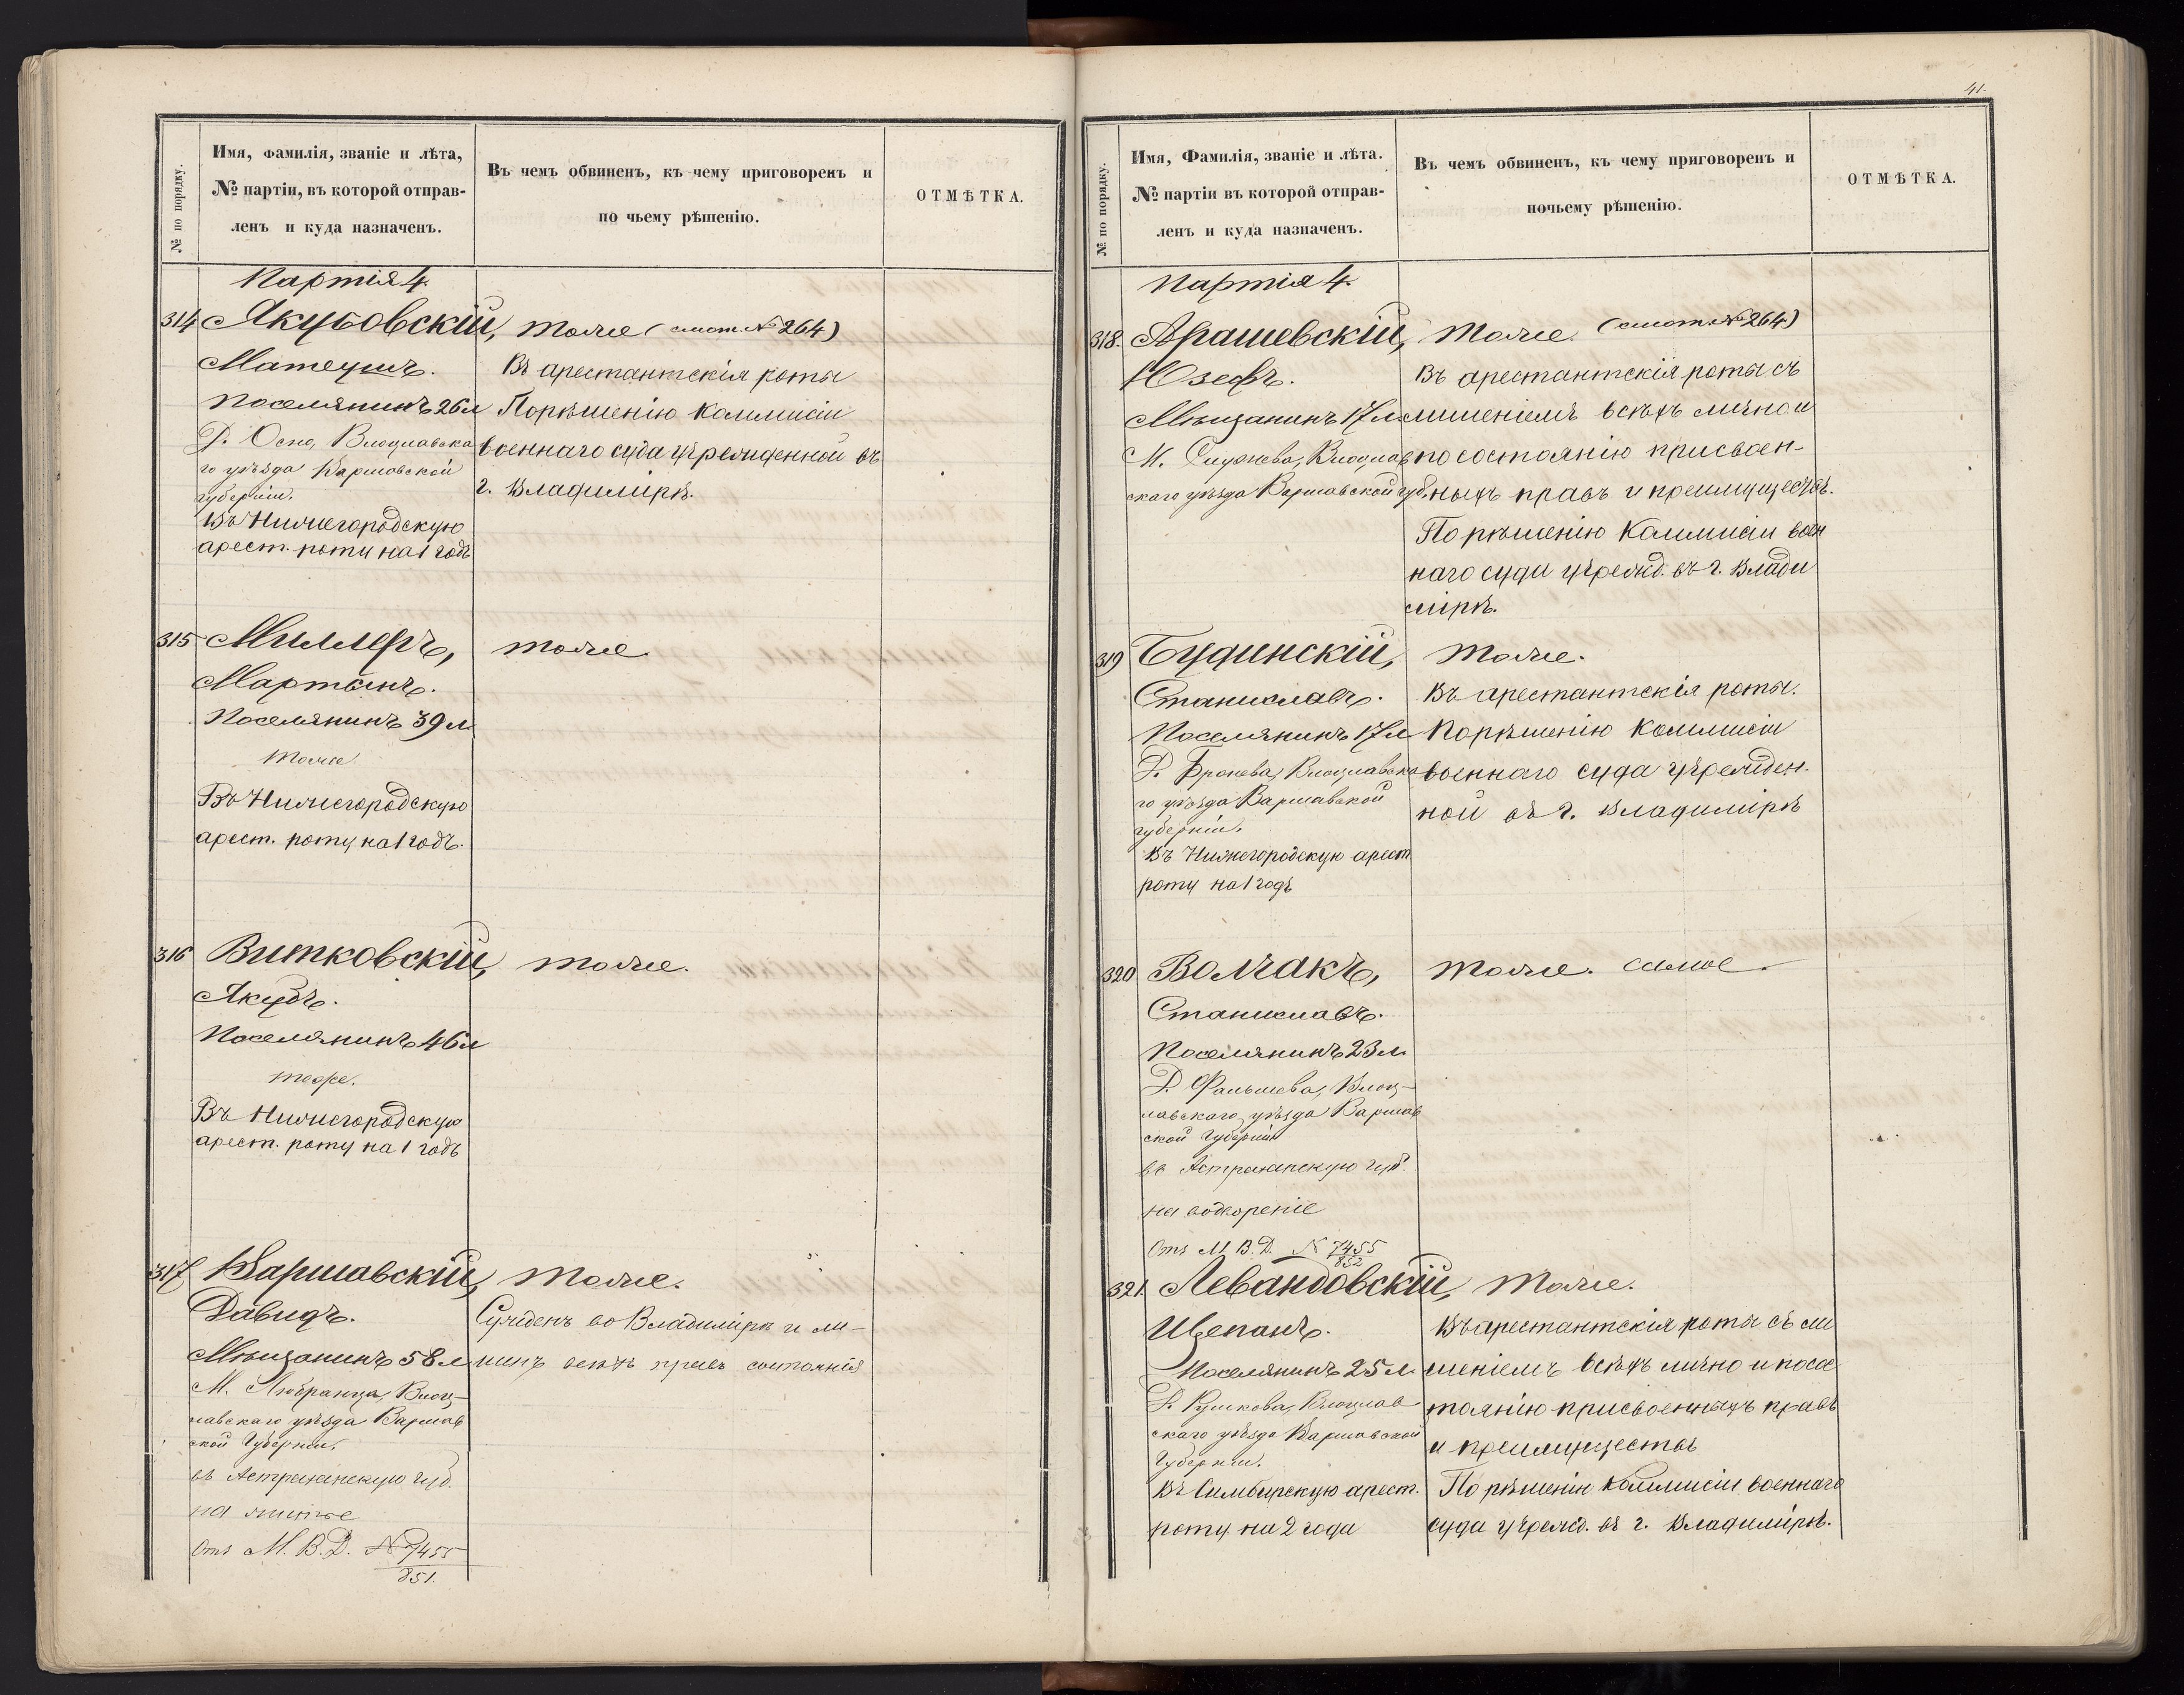 № по порядку.
Имя, Фамилія, званіе и лѣта,
№ партіи, въ которой отправ-
ленъ и куда назначенъ.
Въ чемъ обвиненъ, къ чему приговоренъ и
по чьему рѣшенію.
ОТМѢТКА.
Партія 4.
314 Якубовскій, тоже (смот. № 264)
Матеушъ.
Поселянинъ 26 л
Д. Осно, Влоцлавска
го уѣзда Варшавской
губерніи.
Въ Нижегородскую
арест. роту на 1 годъ
Въ арестантскія роты
По рѣшенію Коммисіи
военнаго суда учрежденной въ
г. Владимірѣ.
315 Миллеръ, тоже
Мартынъ.
Поселянинъ 39 л
тоже
Въ Нижегородскую
арест. роту на 1 годъ.
316 Витковскій, тоже.
Якубъ.
Поселянинъ 46 л
тоже.
Въ Нижегородскую
арест. роту на 1 годъ
317 Варшавскій, тоже.
Давидъ.
Мѣщанинъ 58 л
М. Любранца, Влоц-
лавскаго уѣзда Варшав
ской Губерніи.
въ Астраханскую губ.
на житье
Отъ М. В. Д. № 7455
851.
Сужденъ во Владимірѣ и ли-
шенъ всѣхъ правъ состоянія
41.
№ по порядку.
Имя, Фамилія, званіе и лѣта.
№ партіи въ которой отправ-
ленъ и куда назначенъ.
Въ чемъ обвиненъ, къ чему приговоренъ и
почьему рѣшенію.
ОТМѢТКА.
Партія 4.
318. Арашевскій, тоже (смот. № 264)
Юзефъ.
Мѣщанинъ 17 л
М. Влоцлав
скаго уѣзда Варшавской губ.
Въ арестантскія роты съ
лишеніемъ всѣхъ лично и
по состоянію присвоен-
ныхъ правъ и преимуществъ.
По рѣшенію Коммисіи воен
наго суда учрежд. въ г. Влади
мірѣ.
319 Будинскій, тоже.
Станиславъ.
Поселянинъ 17 л
Д. Бронева, Влоцлавска
го уѣзда Варшавской
губерніи.
Въ Нижегородскую арест
роту на 1 годъ
Въ арестантскія роты.
По рѣшенію Коммисіи
военнаго суда учрежден-
ной въ г. Владимірѣ
320 Волчакъ, тоже. самое.
Станиславъ.
Поселянинъ 23 л.
Д. Фалышева, Влоц-
лавскаго уѣзда Варшав
ской Губерніи
въ Астраханскую губ.
на водвореніе
Отъ М. В. Д. № 7455
852
321. Левандовскій, тоже.
Щепанъ.
Поселянинъ 25 л.
Д. Влоцлав
скаго уѣзда Варшавской
Губерніи.
Въ Симбирскую арест.
роту на 2 года
Въ арестантскія роты съ ли
шеніемъ всѣхъ лично и посос
тоянію присвоенныхъ правъ
и преимуществъ
По рѣшенію Коммисіи военнаго
суда учрежд. въ г. Владимірѣ.